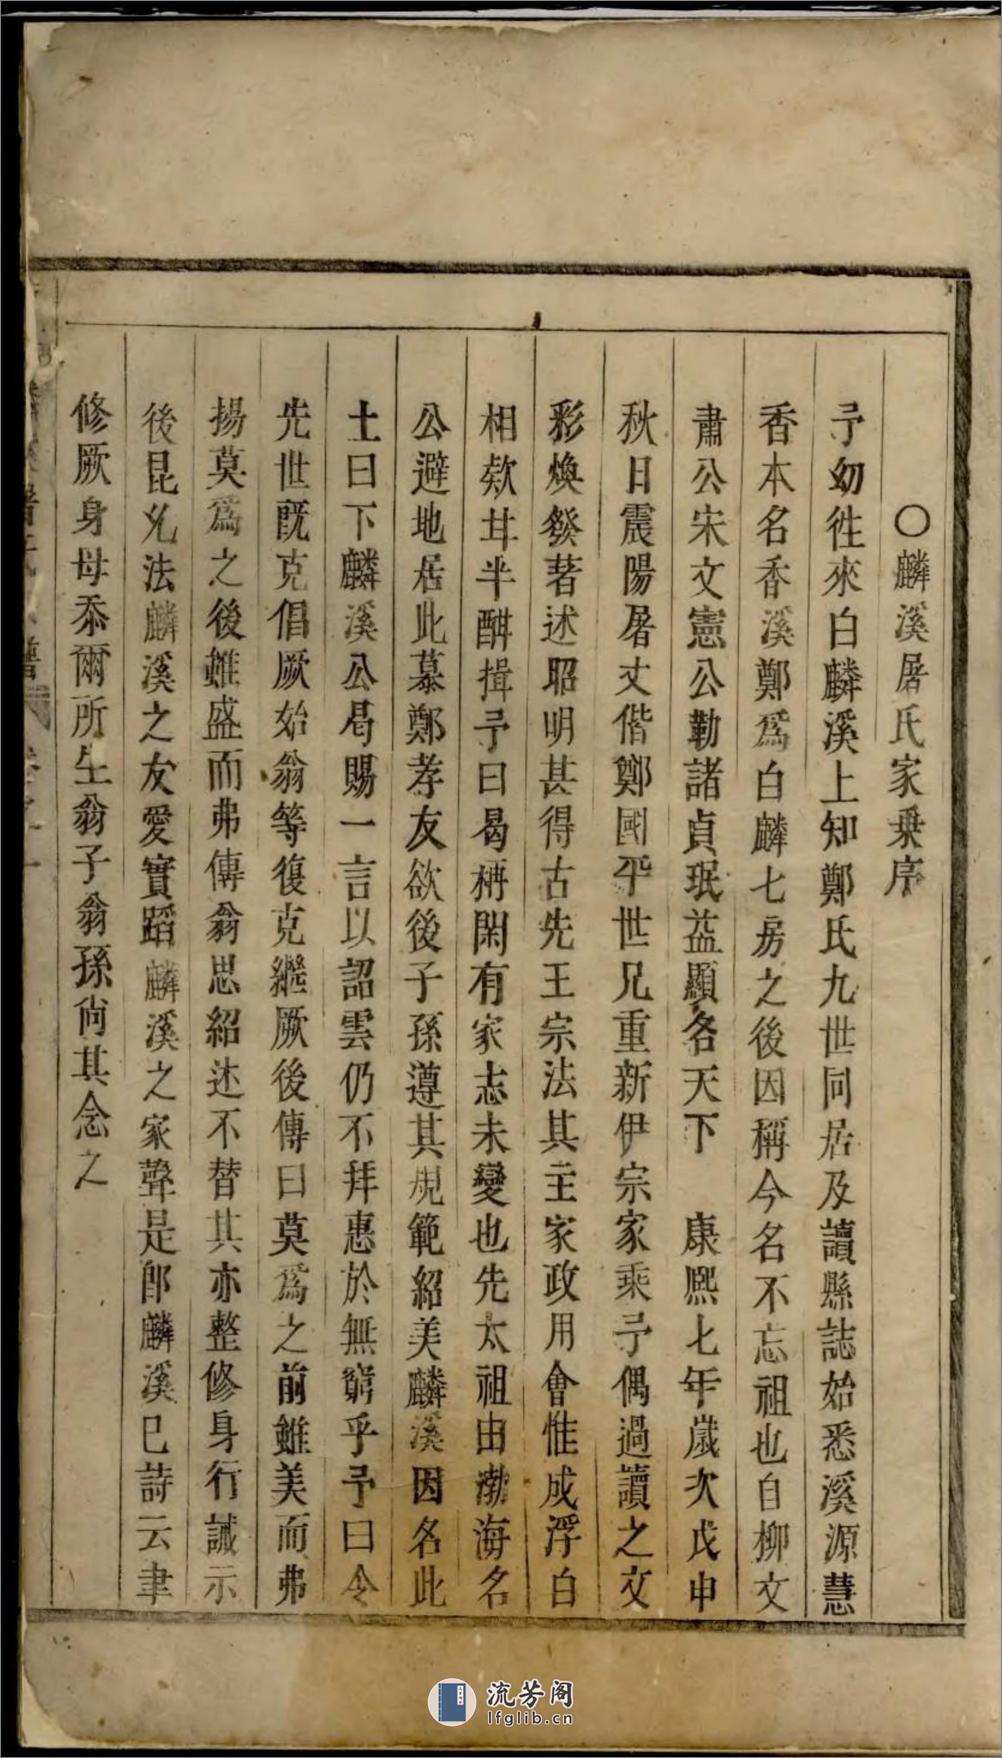 〇麟溪屠氏家乗序
予幼徃來白麟溪上知鄭氏九世同居及讀縣誌始悉溪源慧
香本名香溪鄭爲白麟七房之後因稱今名不忘祖也自柳文
肅公宋文憲公勒諸貞珉益顯各天下　康熙七年歲次戊申
秋日震陽屠丈偕鄭國平世兄重新伊宗家乘予偶過讀之文
彩煥發著述昭明甚得古先王宗法其主家政用會惟成浮白
相欸甘半酣揖予曰曷梼閑有家志未變也先太祖由渤海名
公避地居此慕鄭孝友欲後子孫遵其規範紹美麟溪因名此
土曰下麟溪公曷賜一言以詔雲仍不拜惠於無窮乎予曰令
先世旣克倡厥始翁等復克繼厥後傳曰莫爲之前雖美而弗
揚莫爲之後雖盛而弗傳翁思紹述不替其亦整修身行誠示
後昆凡法麟溪之友愛實蹈麟溪之家聲是卽麟溪已詩云聿
修厥身母忝爾所生翁子翁孫尙其念之
屠氏
譜
卷之一
流芳阁
lfglib.cn